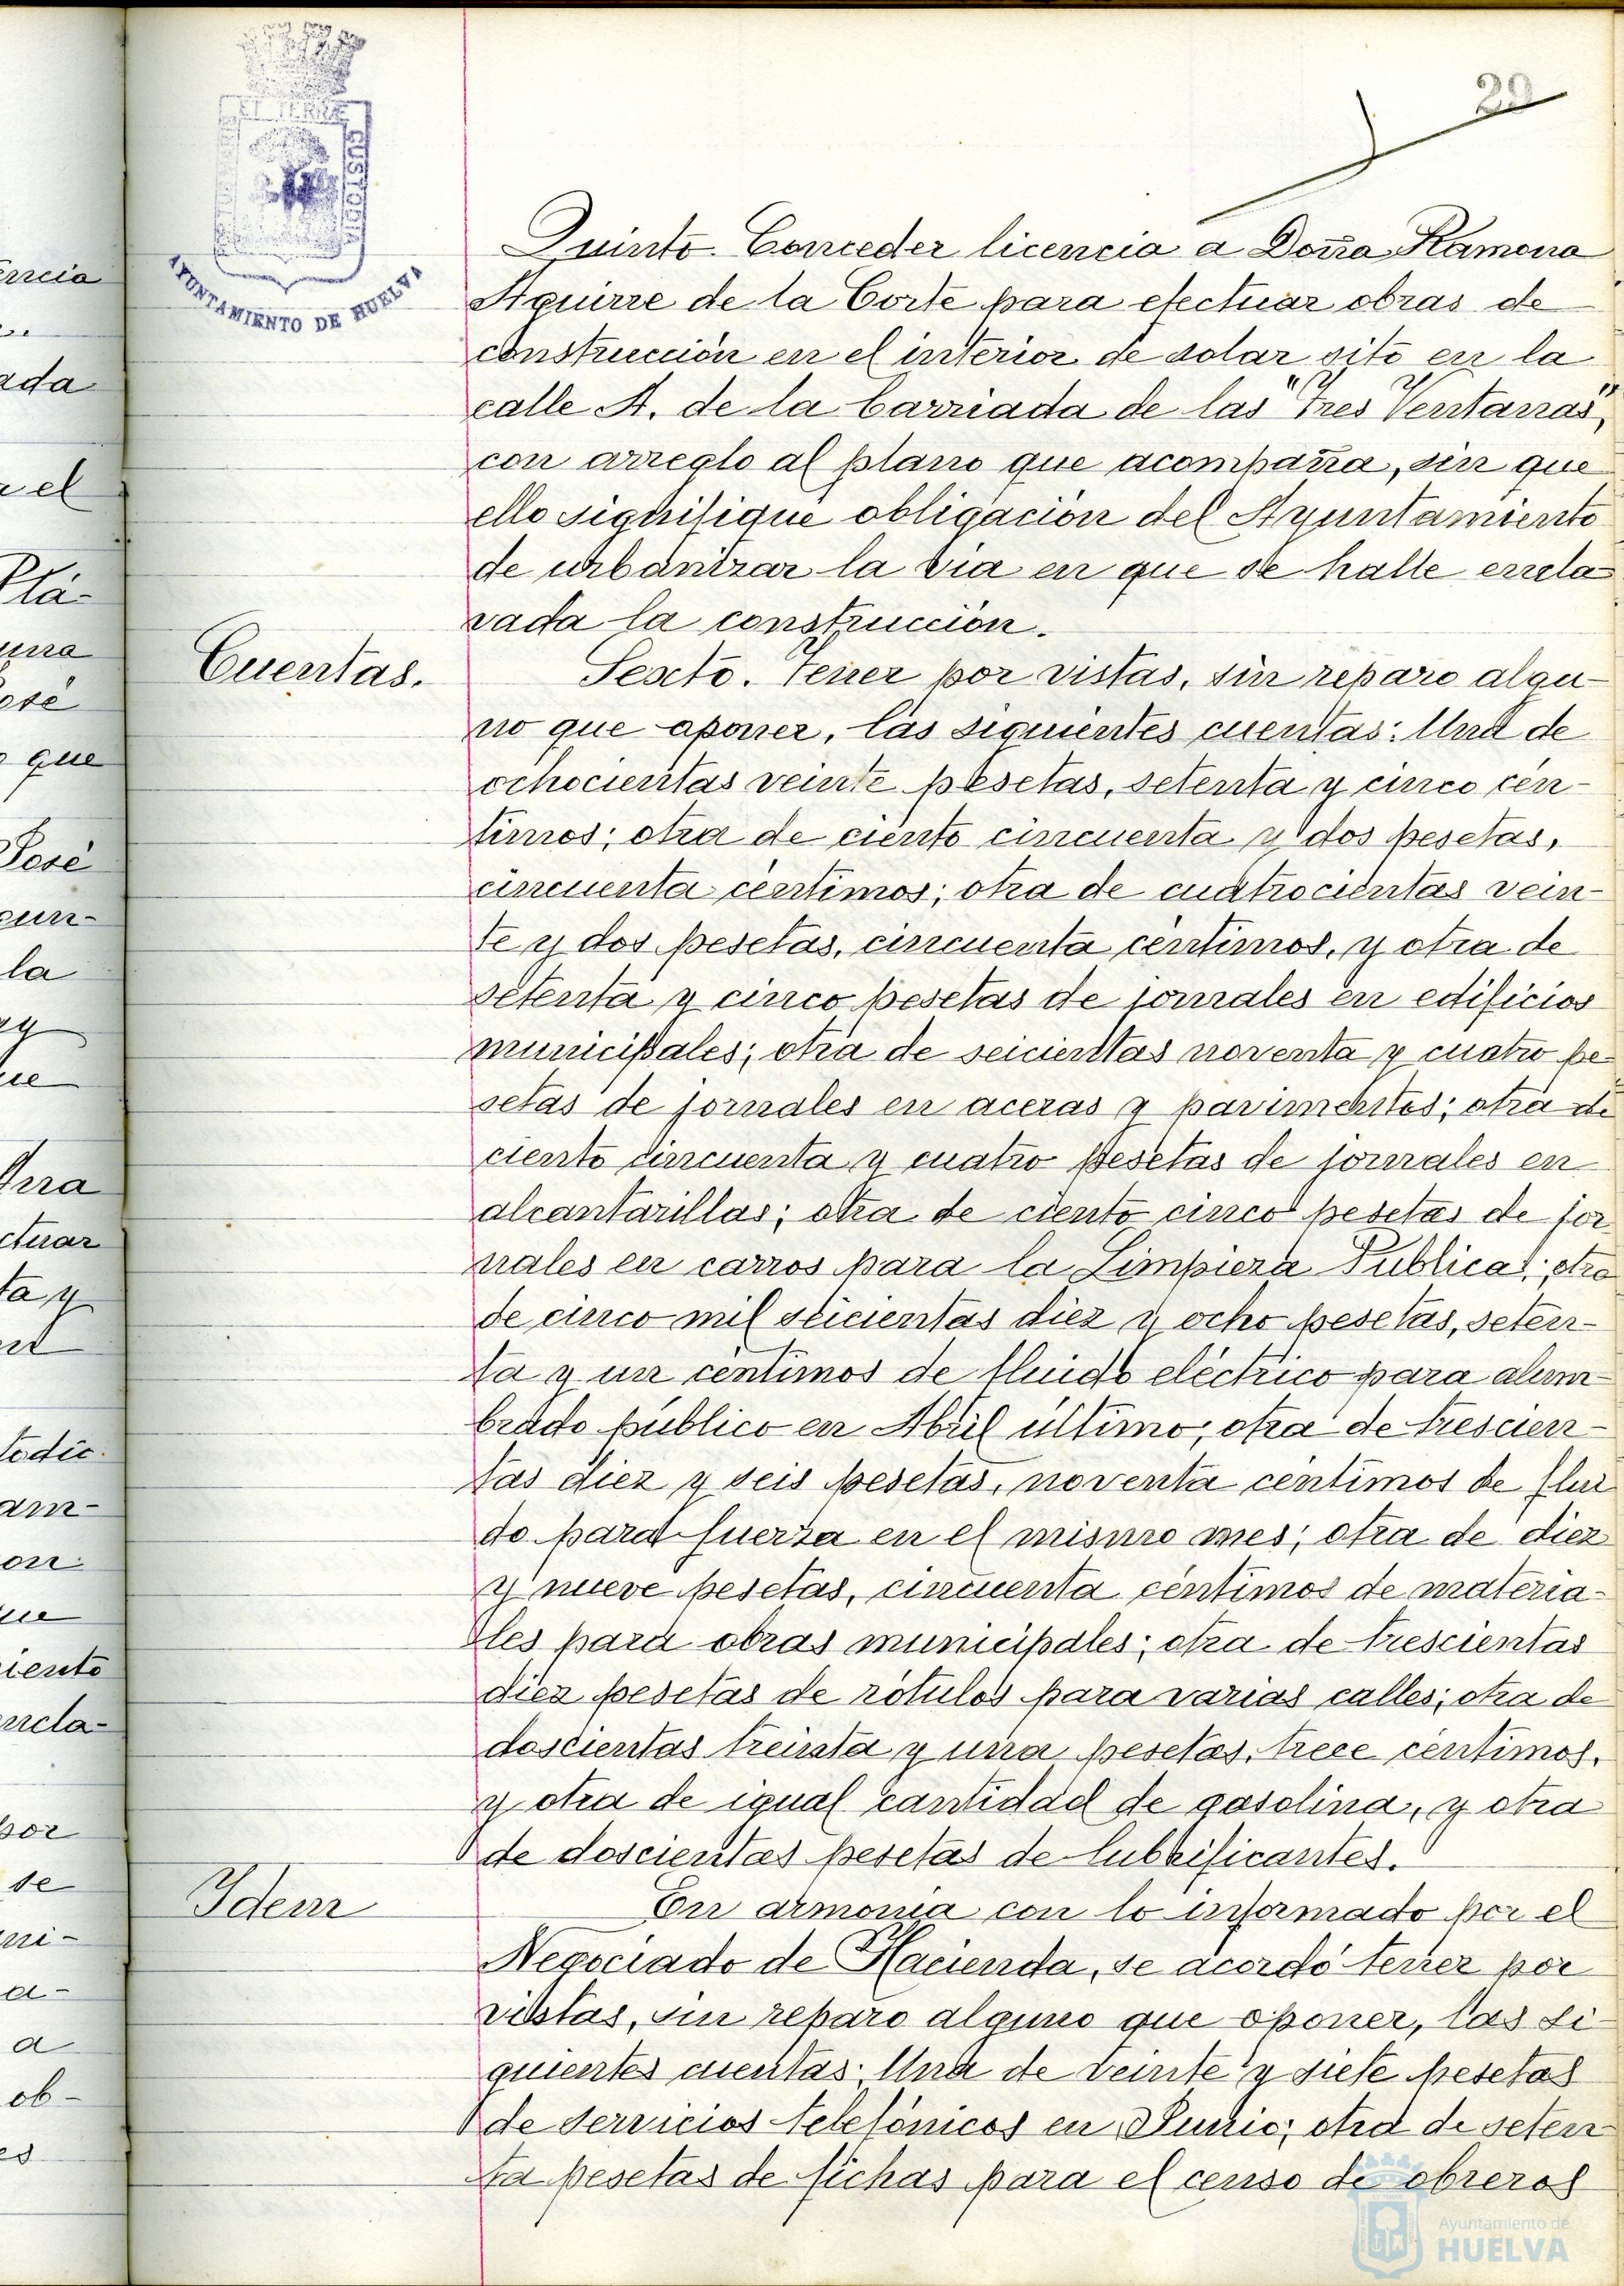 29
AYUNTAMIENTO DE HUELVA
Quinto. Conceder licencia a Doña Ramona
Aguirre de la Corte para efectuar obras de
construcción en el interior de solar sito en la
calle A. de la barriada de las "Tres Ventanas",
con arreglo al plano que acompaña, sin que
ello signifique obligación del Ayuntamiento
de urbanizar la via en que se halle encla
vada la construcción.
Cuentas.
Sexto. Tener por vistas, sin reparo algu-
no que oponer, las siguientes cuentas: Una de
ochocientas veinte pesetas, setenta y cinco cén-
timos; otra de ciento cincuenta y dos pesetas,
cincuenta centimos; otra de cuatrocientas vein-
te y dos pesetas, cincuenta céntimos, y otra de
setenta y cinco pesetas de jornales en edificios
municipales; otra de seicientas noventa y cuatro pe
setas de jornales en aceras y pavimentos; otra de
ciento cincuenta y cuatro pesetas de jornales en
alcantarillas; otra de ciento cinco pesetas de jor
nales en carros para la Limpieza Publica; otra
de cinco mil seicientas diez y ocho pesetas, seten-
ta y un centimos de fluido eléctrico para alum-
brado público en Abril último; otra de trescien-
tas diez y seis pesetas, noventa centimos de flui
do para fuerza en el mismo mes; otra de diez
y nueve pesetas, cincuenta céntimos de materia-
les para obras municipales; otra de trescientas
diez pesetas de rótulos para varias calles; otra de
doscientas treinta y una pesetas, trece centimos,
y otra de igual cantidad de gasolina, y otra
de doscientas pesetas de lubrificantes.
Idem
En armonia con lo informado por el
Negociado de Hacienda, se acordó tener por
vistas, sin reparo alguno que oponer, las si-
guientes cuentas: Una de veinte y siete pesetas
de servicios telefónicos en Junio; otra de seten
ta pesetas de fichas para el censo de obreros
Ayuntamiento de
HUELVA